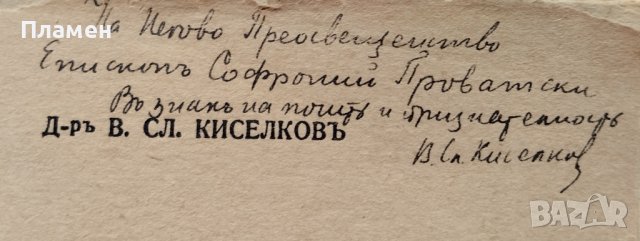 Пламен
На Негово Преосвещенство
Епископъ Софроний
Въ знакъ на почить и признателность
Д-ръ В. СЛ. КИСЕЛКОВЪ
В. Сл. Киселков
BAZAR